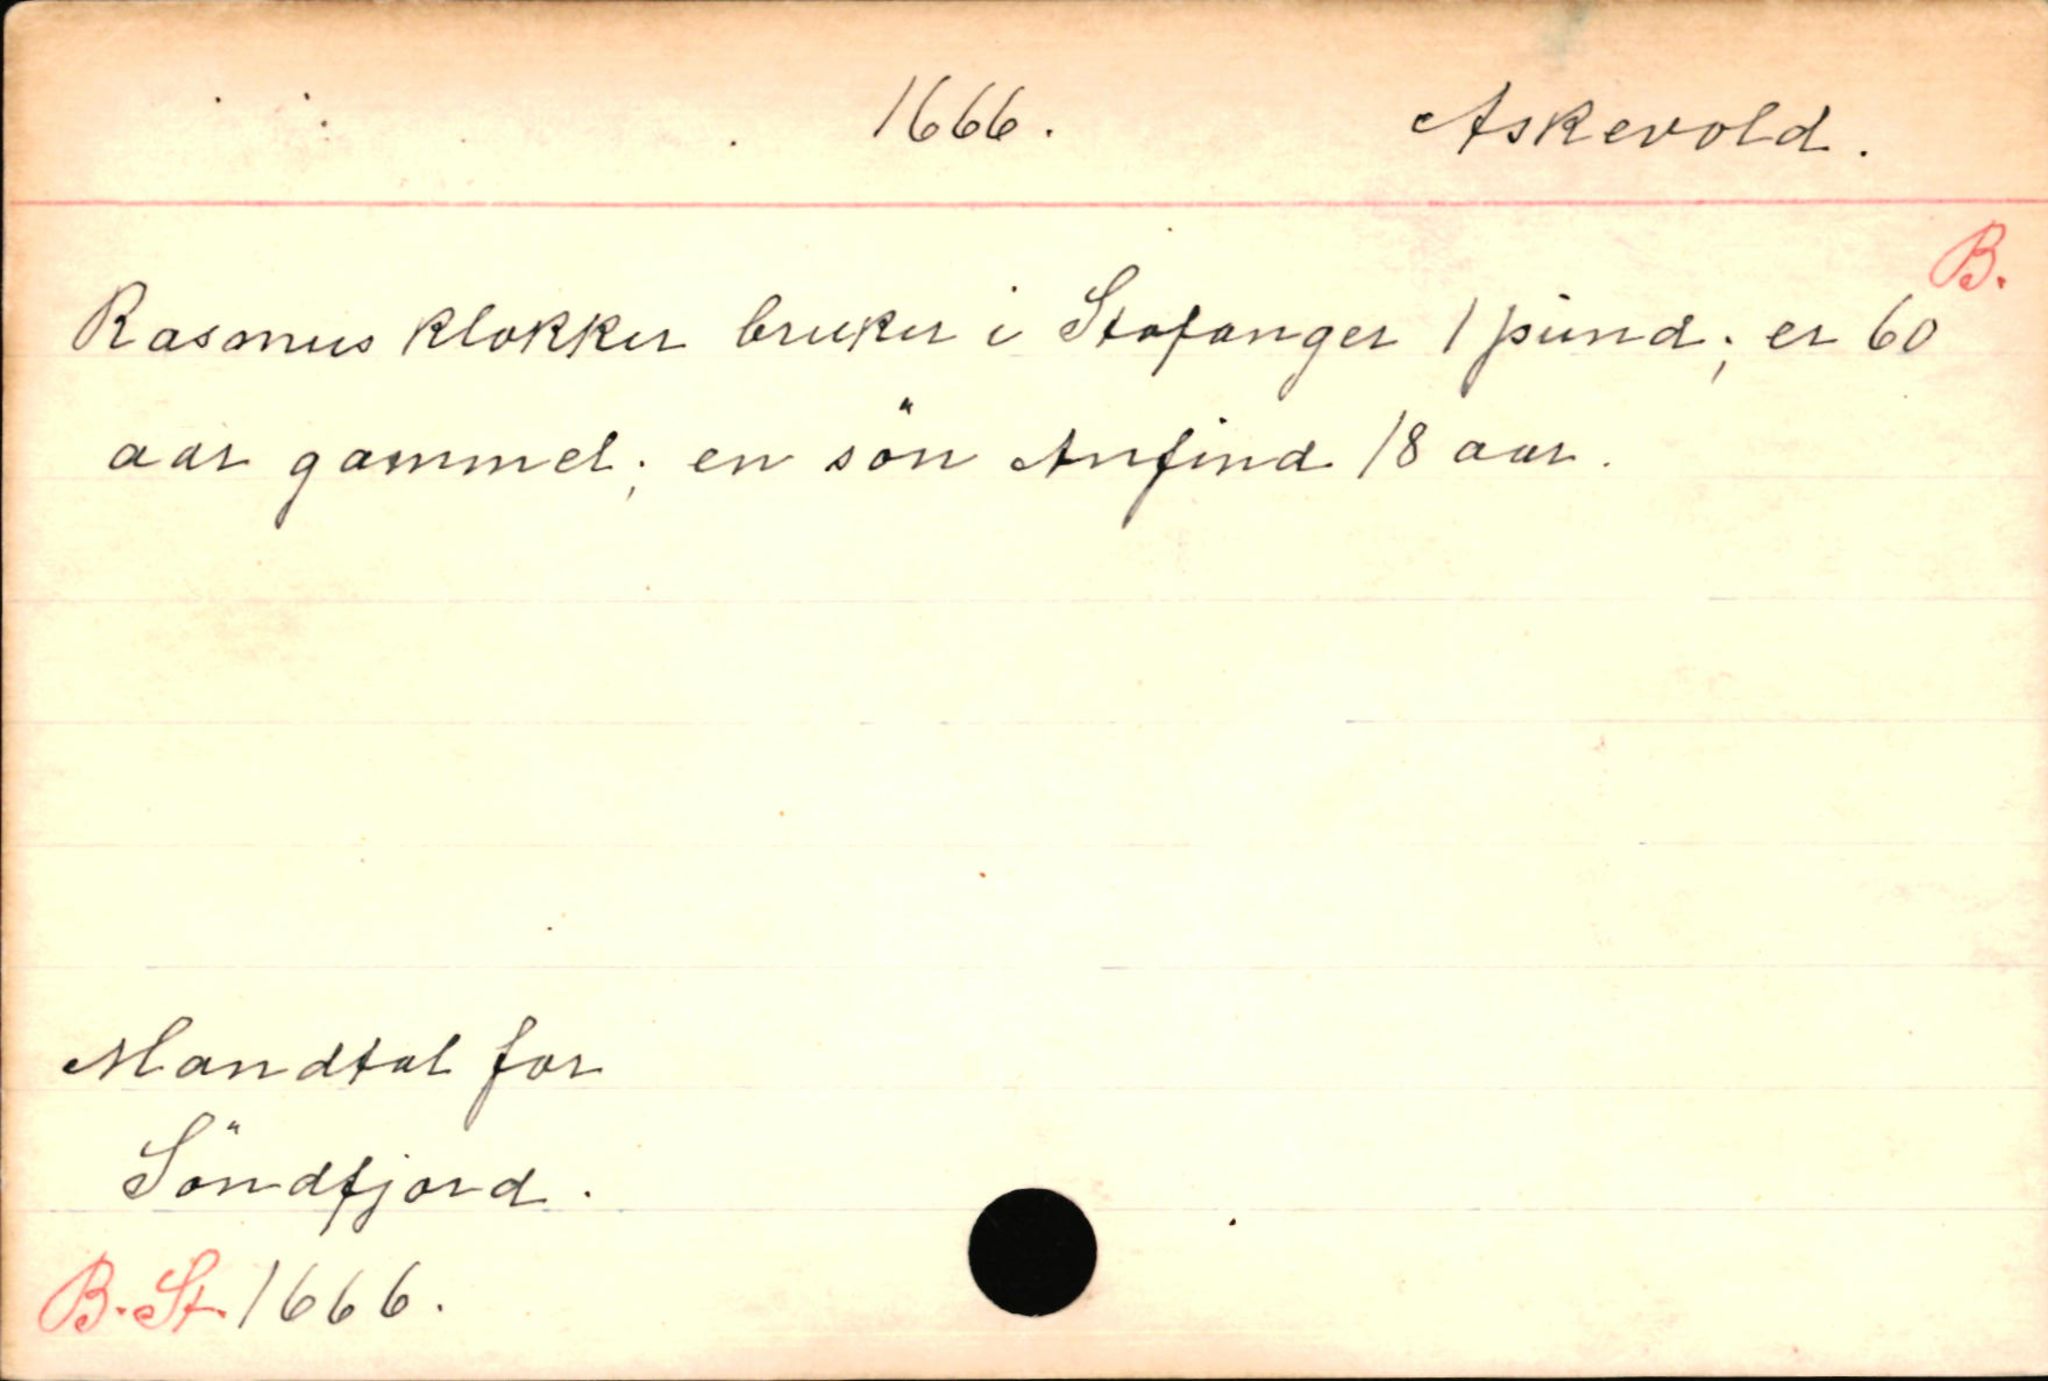 1666. Askevold.
B.
Rasmus klokker bruker i Stafanger 1 pund; er 60
aar gammel; en sön Anfind 18 aar.
Mandtal for
Söndfjord.
B. St. 1666.